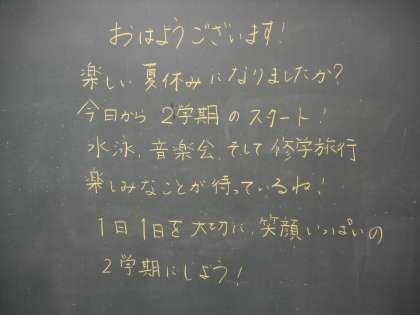 おはようございます!
楽しい夏休みになりましたか?
今日から2学期のスタート!
水泳、音楽会、そして修学旅行
楽しみなことが待っているね!
1日1日を大切に、笑顔いっぱいの
2学期にしよう!